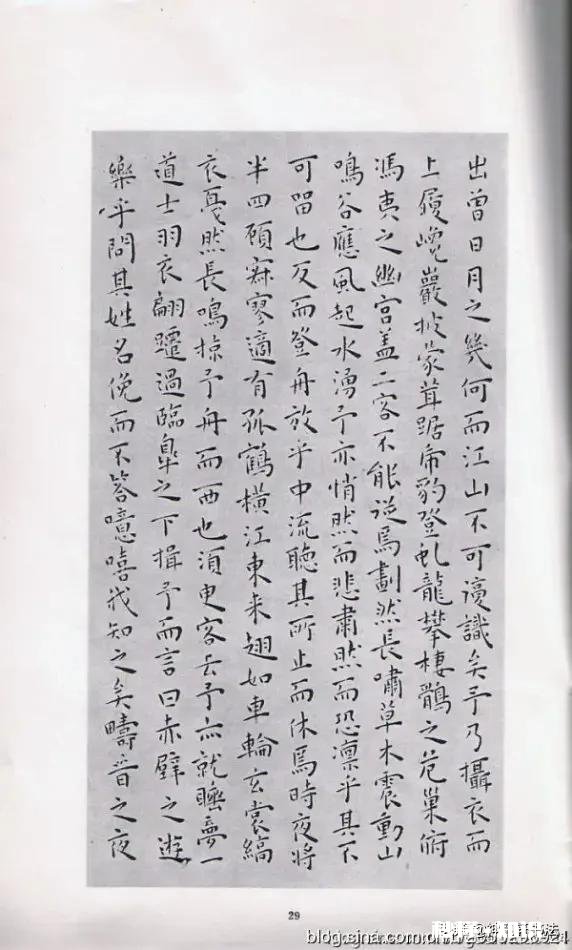 出曾日月之幾何而江山不可復識矣予乃攝衣而
上履巉巖披蒙茸踞虎豹登虬龍攀棲鶻之危巢俯
馮夷之幽宮盖二客不能從焉劃然長嘯草木震動山
鳴谷應風起水湧予亦悄然而悲肅然而恐凛乎其不
可留也反而登舟放乎中流聽其所止而休焉時夜將
半四顧寂寥適有孤鶴橫江東来翅如車輪玄裳縞
衣戛然長鳴掠予舟而西也須臾客去予亦就睡夢一
道士羽衣翩躚過臨臯之下揖予而言曰赤壁之遊
樂乎問其姓名俛而不答噫嘻我知之矣疇昔之夜
29
blog.sina.com.cn